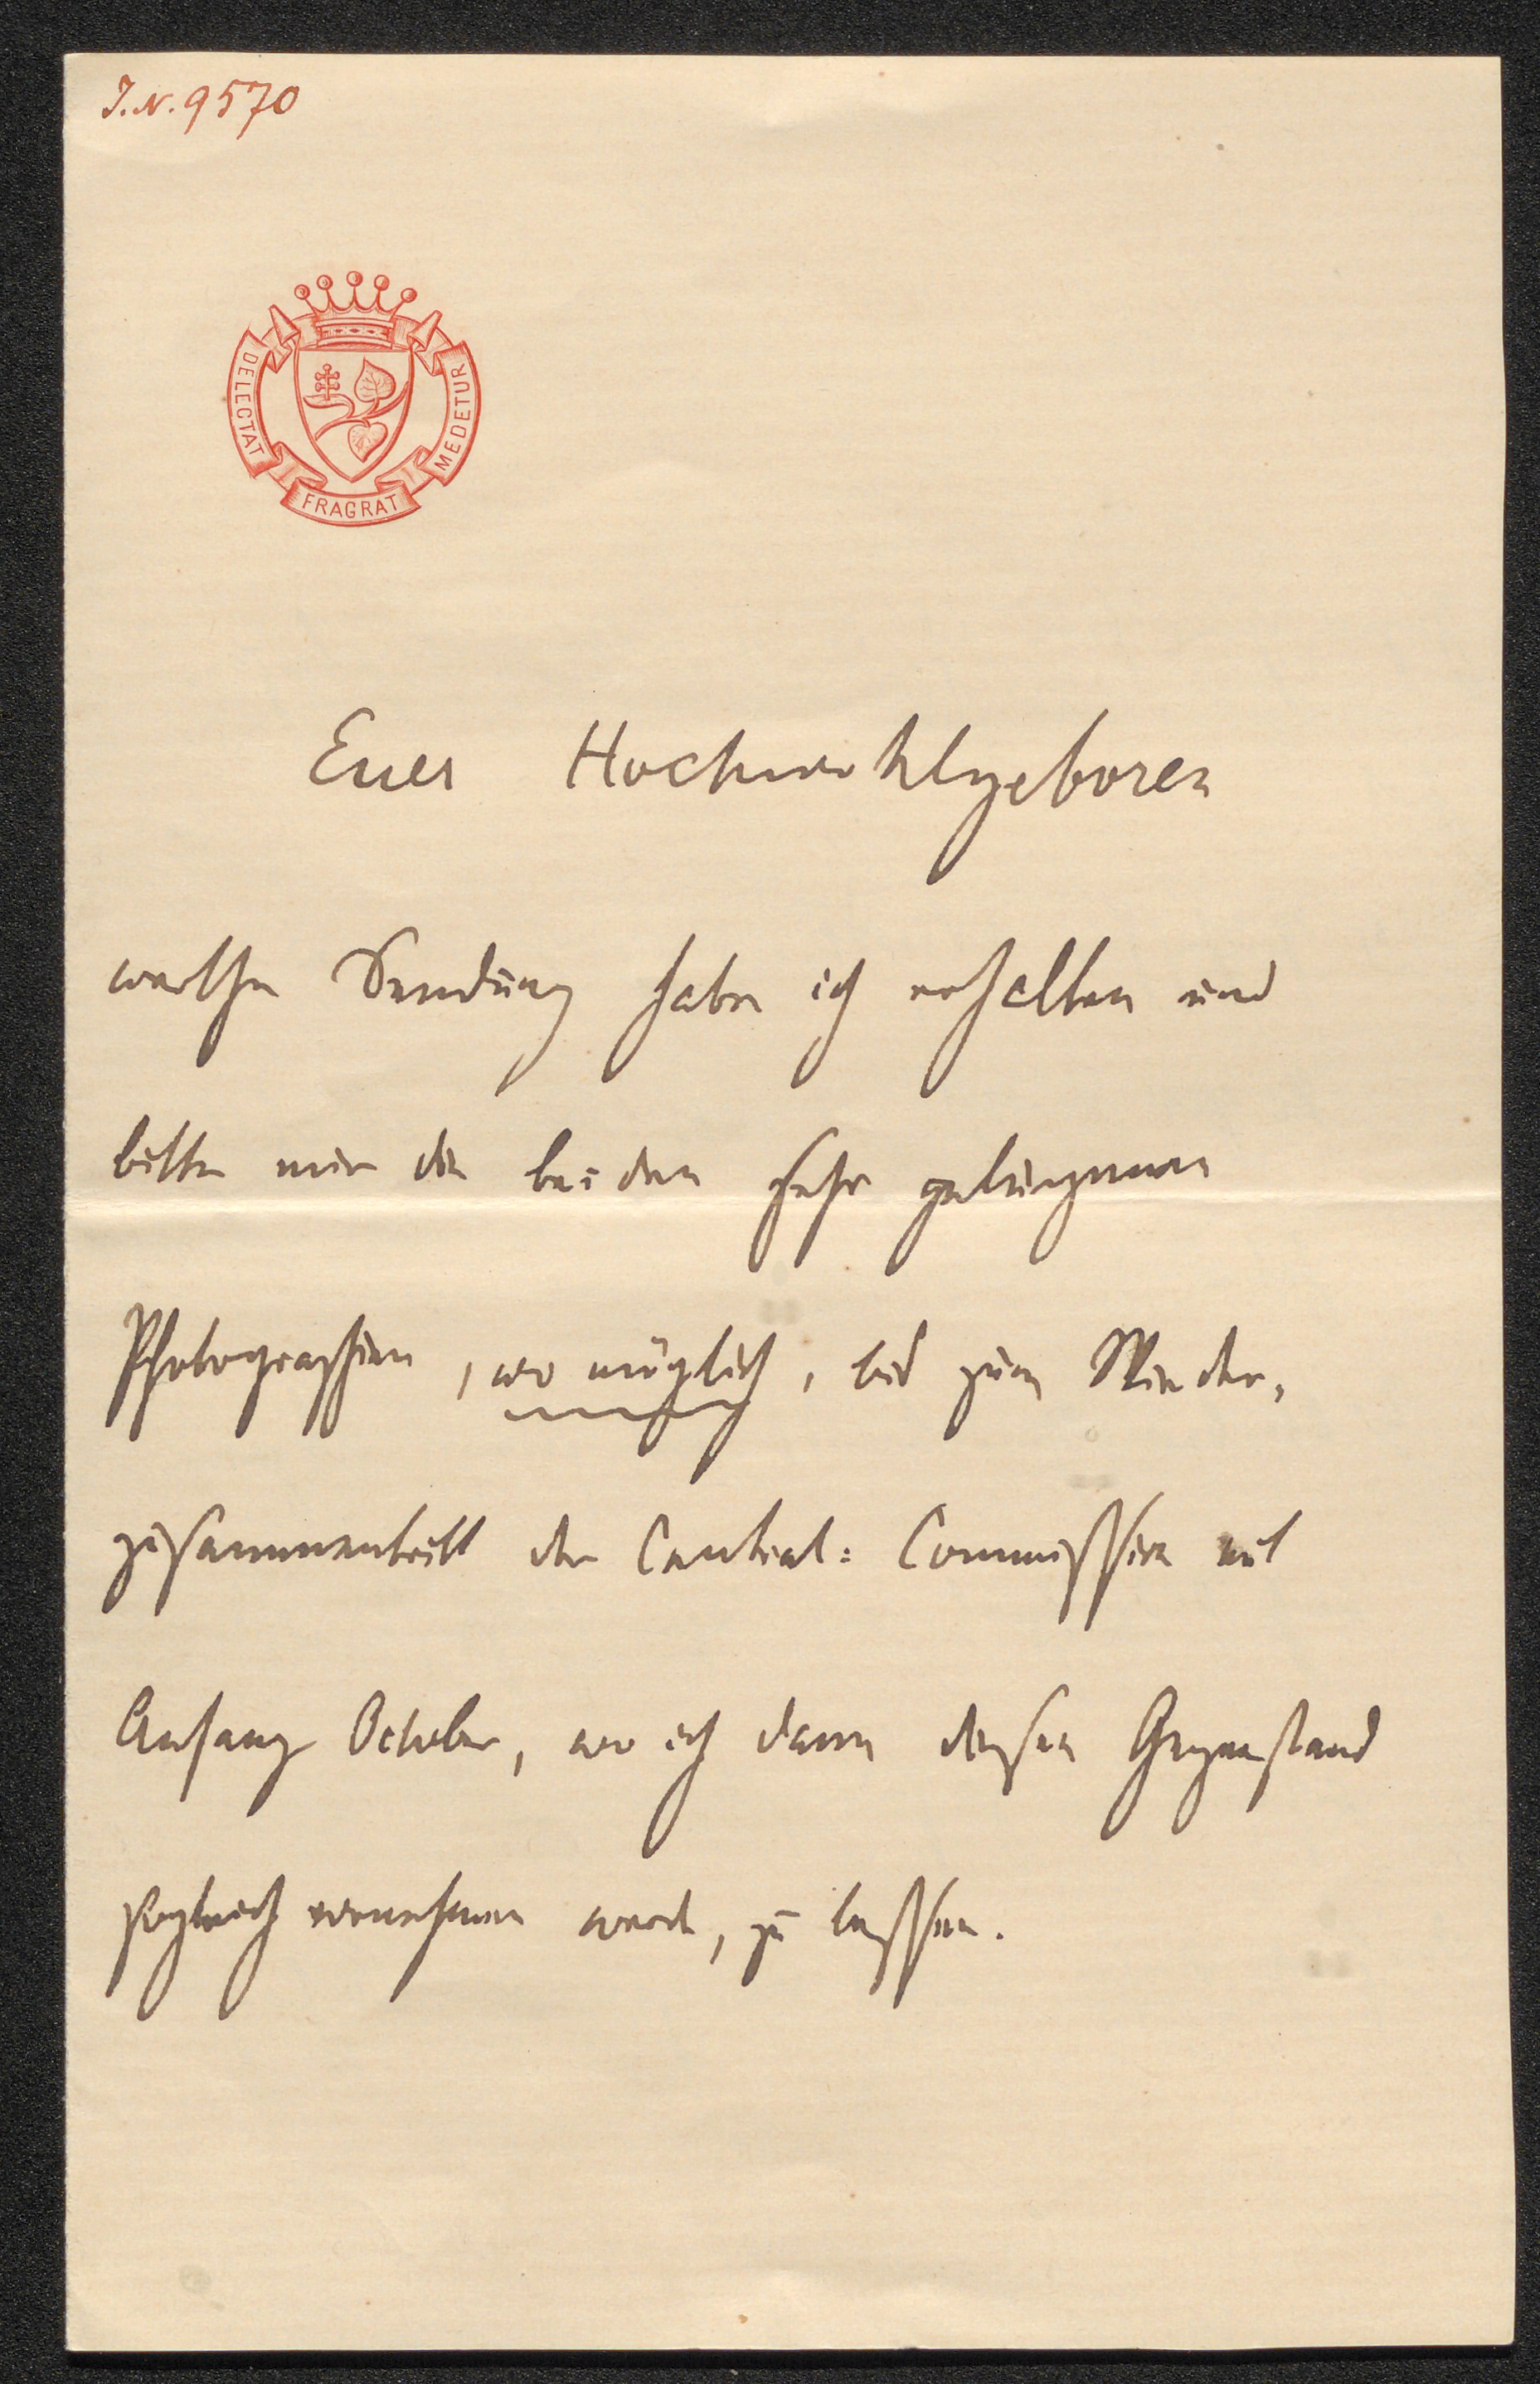 J.N. 9570
DELECTAT
FRAGRAT
MEDETUR
Euer Hochwohlgeboren
werthe Sendung habe ich erhalten und
bitte mir die beiden sehr gelungenen
Photographien, wo möglich, bis zum Wieder-
zusammentritt der Central-Commission mit
Anfang October, wo ich dann diesen Gegenstand
sogleich vornehmen werde, zu lassen.